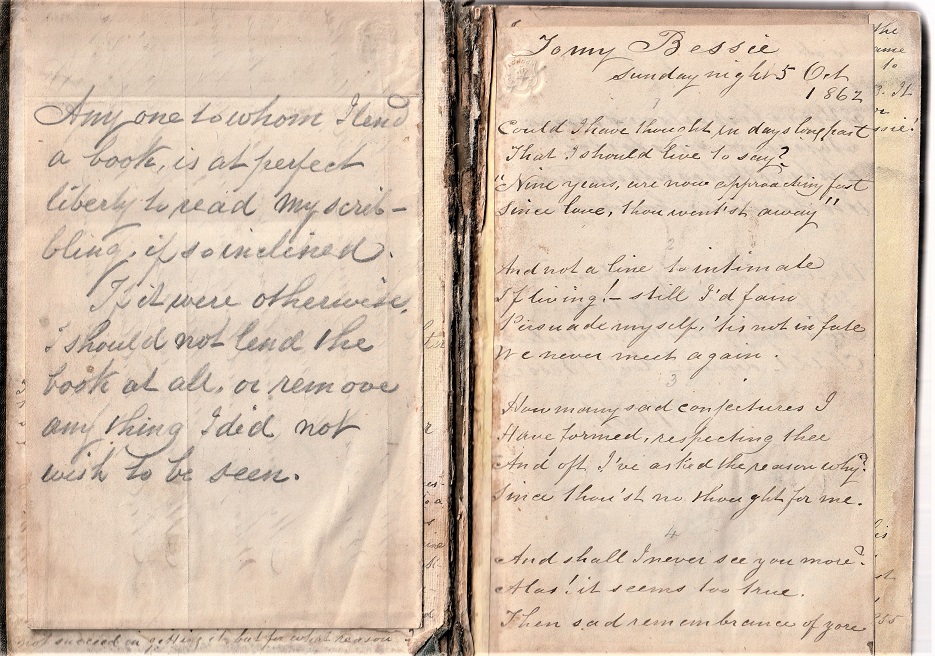 Any one to whom I lend
a book, is at perfect
liberty to read my scrib-
bling, if so inclined.
If it were otherwise,
I should not lend the
book at all, or remove
any thing I did not
wish to be seen.
not succeed in getting it, but for what reason
To my Bessie
Sunday night 5 Oct
1862
1
Could I have thought in days long past
That I should live to say?
"Nine years, are now approaching fast
Since love, thou went'st away"
2
And not a line to intimate
If living! – still I'd fain
Persuade myself, 'tis not in fate
We never meet again.
3
How many sad conjectures I
Have formed, respecting thee
And oft, I've asked the reason why?
Since thou'st no thought for me.
4
And shall I never see you more?
Alas! it seems too true.
Then sad remembrance of yore
the
ame
to
It
ssie!
his
st
55